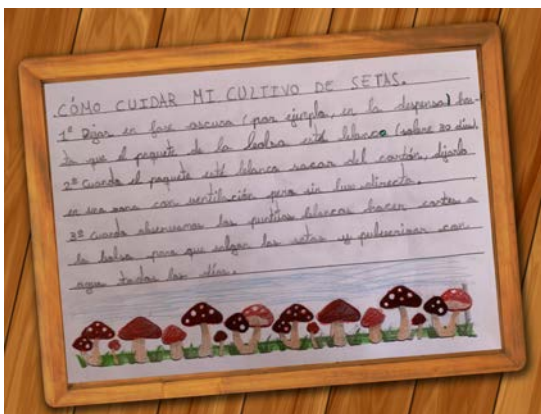 CÓMO CUIDAR MI CULTIVO DE SETAS.
1º Dejar en fase oscura (por ejemplo, en la despensa) has-
ta que el paquete de la bolsa esté blanco (sobre días).
2º Cuando el paquete esté blanco sacar del cartón, dejarlo
en una zona con ventilación pero sin luz directa.
3º Cuando observemos los puntitos blancos hacer cortes a
la bolsa para que salgan las setas y pulverizar con
agua todos los días.